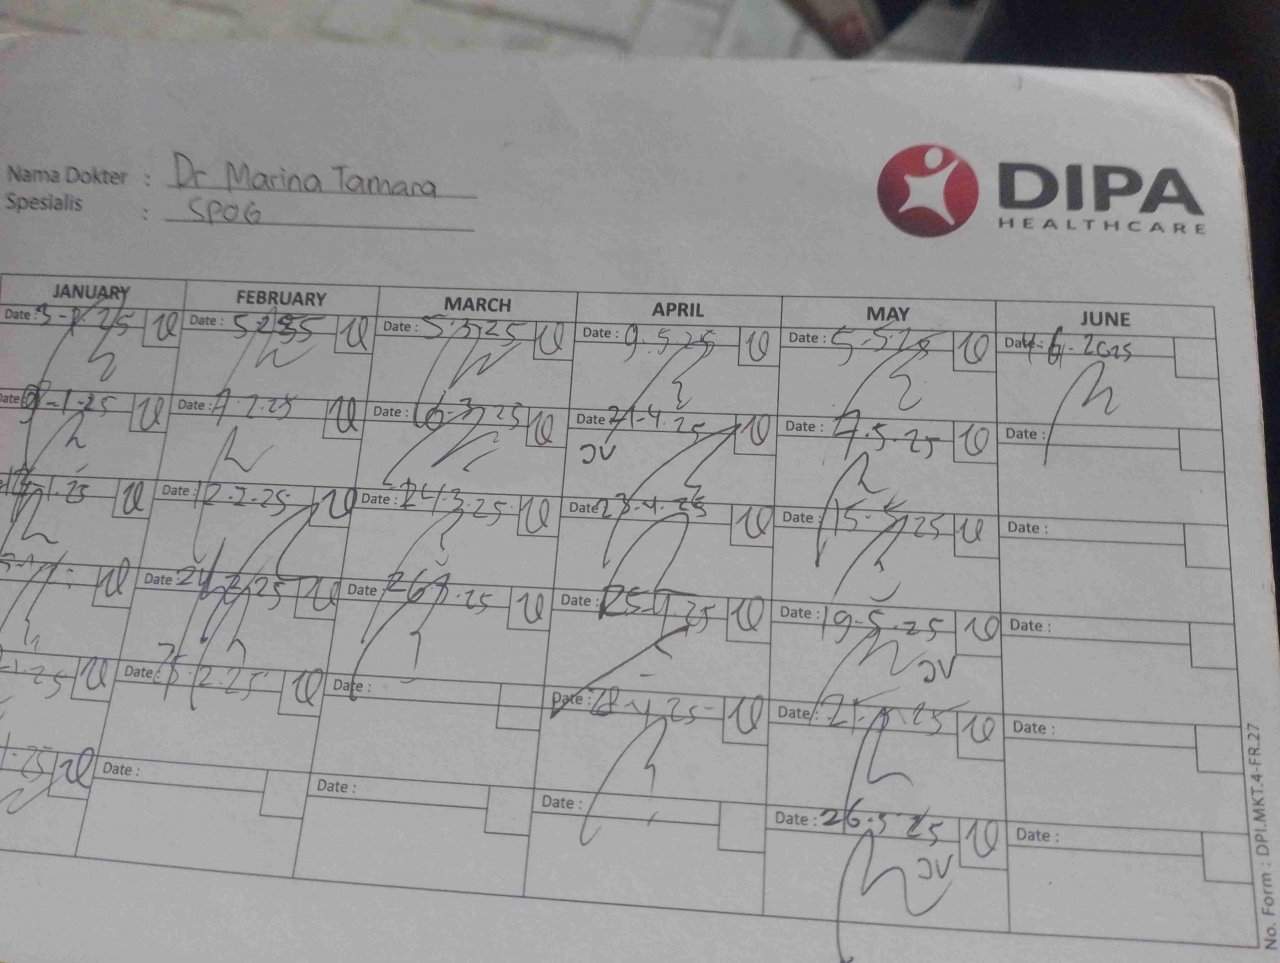 Nama Dokter : Dr Marina Tamara
Spesialis : SPOG
DIPA
HEALTHCARE
JANUARY FEBRUARY MARCH APRIL MAY JUNE
Date : 3-1-25 Date : Date : 5.3.25 Date : 9.5.25 Date : 5-5.25 Date : 4-6-2025
Date : 8-1-25 Date : 7.2.25 Date : 6-3.25 Date : 21-4.25 Date : 7.5.25 Date :
JV
Date : 12.2.25 Date : 24.3.25 Date : 23.4.25 Date : 15-5.25 Date :
Date : 24.2.25 Date : 26.3.25 Date : 25-4.25 Date : 19-5.25 Date :
JV
Date : 25.2.25 Date : Date : 28-4.25 Date : 21.5.25 Date :
Date : Date : Date : Date : 26.5.25 Date :
JV
No. Form : DPI.MKT.4-FR.27